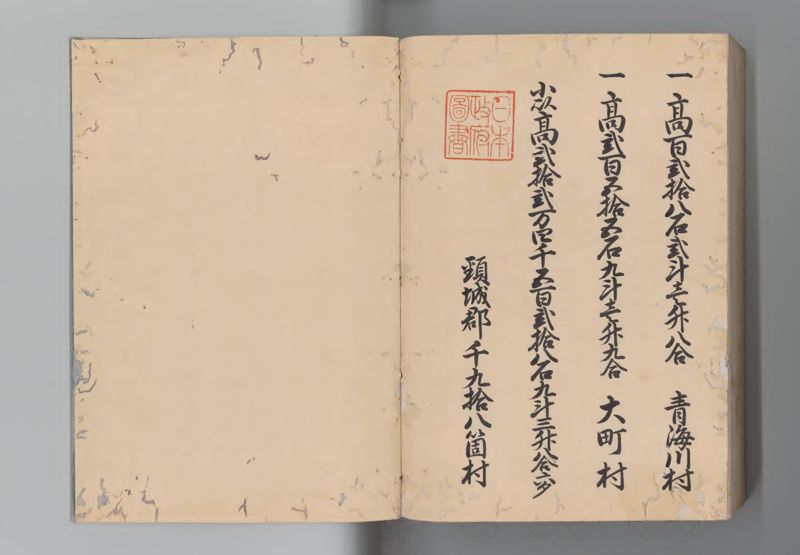 一 高百弐拾八石弐斗壱升八合 青海川村
一 高弐百五拾五石九斗壱升九合 大町村
小以高弐拾弐万四千五百弐拾八石九斗三升八合二夕
頸城郡 千九拾八箇村
日本
政府
図書